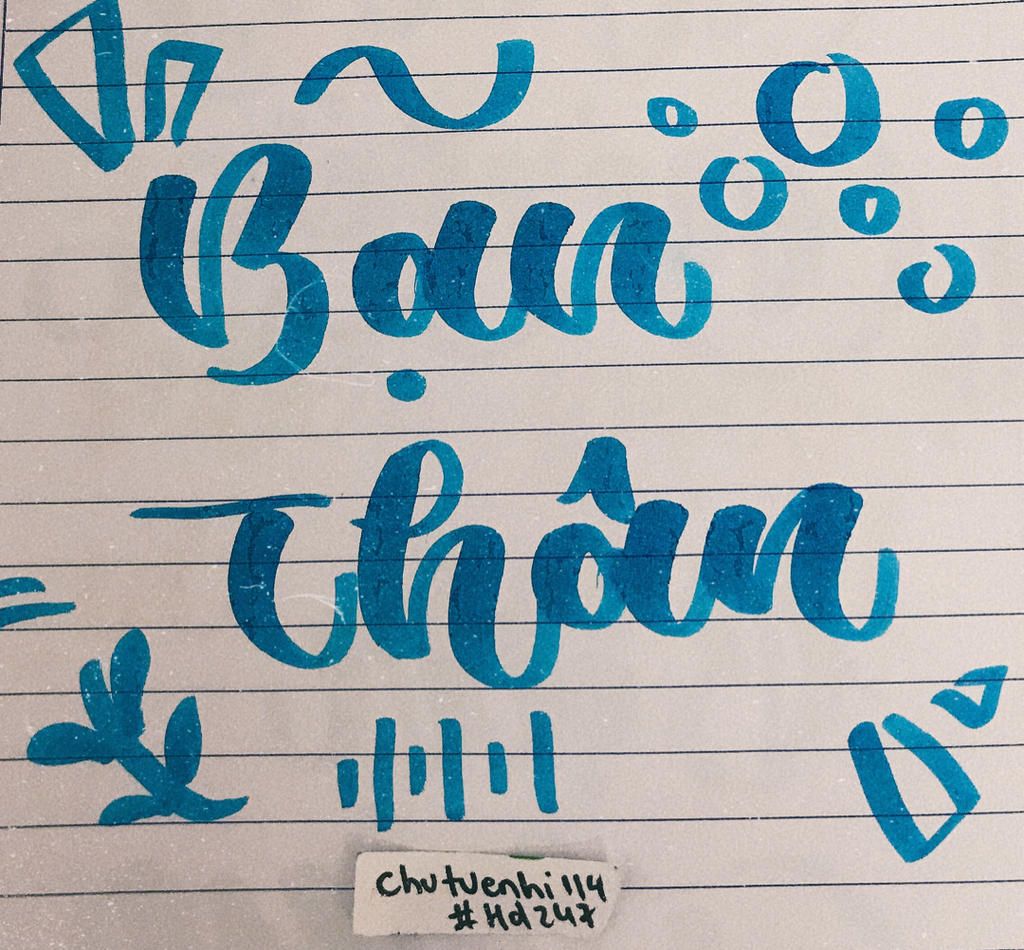 Bạn
Thân
chutuenhi114
#Hd247